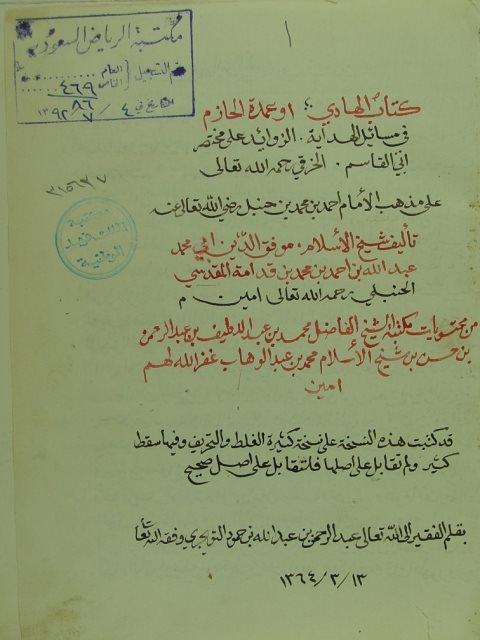 ١
مكتبة الرياض السعودية
رقم التسجيل
العام
الخاص
٤٦٩
٨٦
التاريخ في ٤ / ٧ / ١٣٩٢
كتاب الهادي؛ او عمدة الحازم
في مسائل الهداية. الزوائد على مختصر
ابي القاسم. الخرقي رحمه الله تعالى
على مذهب الامام احمد بن محمد بن حنبل رضي الله تعالى عنه
تأليف شيخ الأسلام. موفق الدين. ابي محمد
عبد الله بن احمد بن محمد بن قدامة المقدسي
الحنبلي رحمه الله تعالى امين م
من محتويات مكتبة الشيخ الفاضل محمد بن عبد اللطيف بن عبد الرحمن
بن حسن بن شيخ الأسلام محمد بن عبد الوهاب غفر الله لهم
امين
قد كتبت هذه النسخة على نسخة كثيرة الغلط والتحريف وفيها سقط
كثير ولم تقابل على اصلها فلتقابل على اصل صحيح
بقلم الفقير الى الله تعالى عبد الرحمن بن عبد الله بن حمود التويجري وفقه الله تعالى
١٣٦٤/٣/١٣